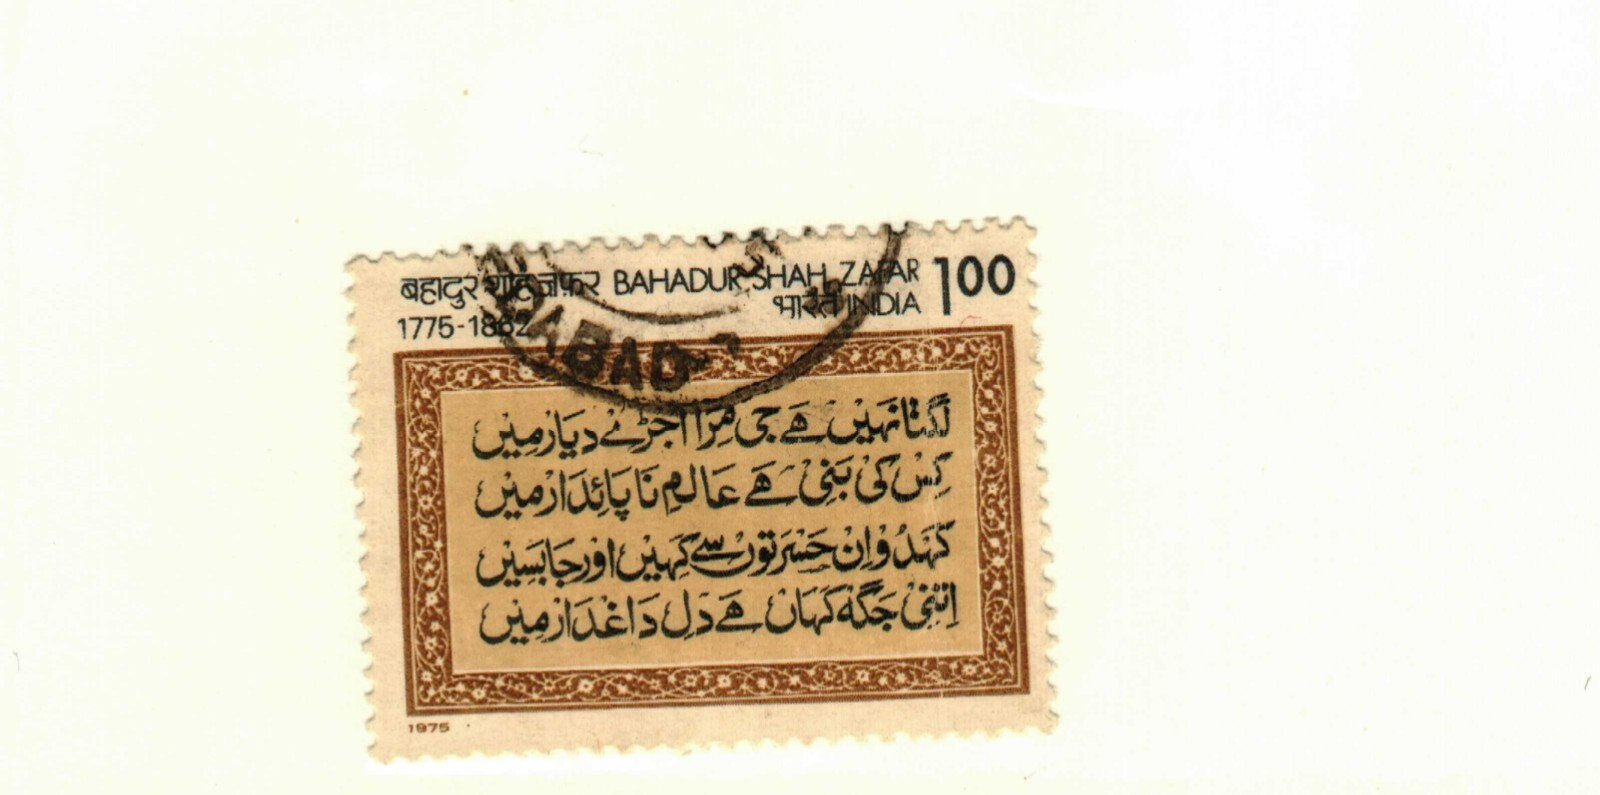 बहादुर शाह ज़फ़र BAHADUR SHAH ZAFAR 100
1775-1862 भारत INDIA
ABAD
لگتا نہیں ہے جی مرا اجڑے دیار میں
کِس کی بَنی ہے عالمِ ناپائدار میں
کہدو اِن حسرتوں سے کہیں اور جا بسیں
اِتنی جگہ کہاں ہے دلِ داغدار میں
1975